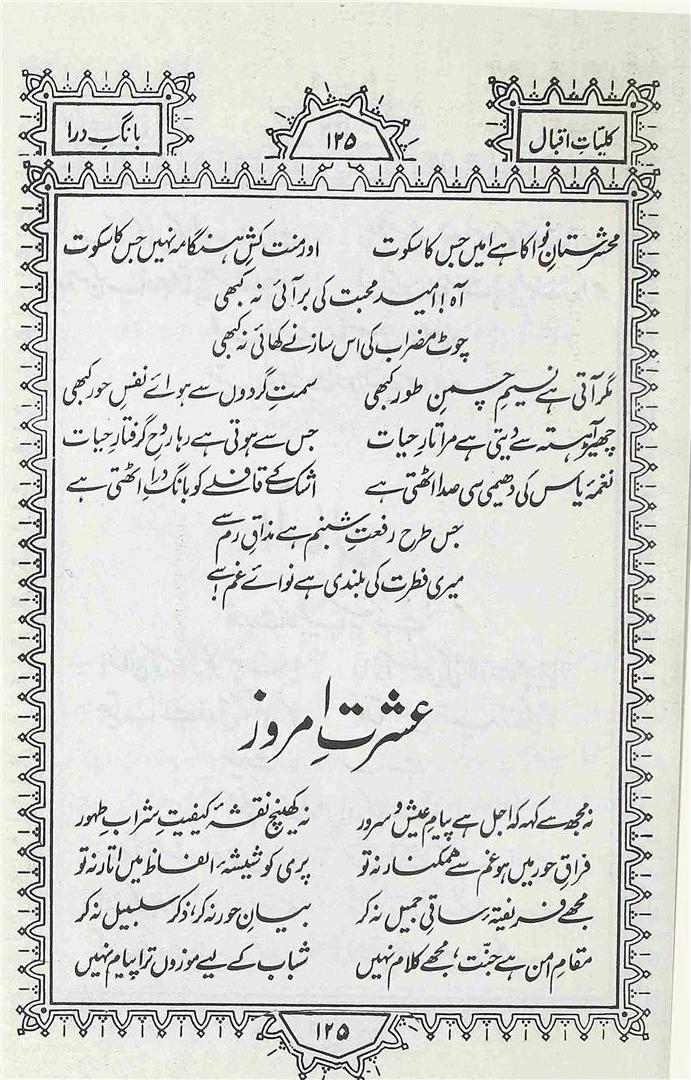 کلیاتِ اقبال ۱۲۵ بانگِ درا
محشرستانِ نوا کا ہے امیں جس کا سکوت اور منت کشِ ہنگامہ نہیں جس کا سکوت
آہ! امید محبت کی بر آئی نہ کبھی
چوٹ مضراب کی اس ساز نے کھائی نہ کبھی
مگر آتی ہے نسیمِ چمنِ طور کبھی سمتِ گردوں سے ہوائے نفسِ حور کبھی
چھیڑ آہستہ سے دیتی ہے مرا تارِ حیات جس سے ہوتی ہے رہا روحِ گرفتارِ حیات
نغمۂ یاس کی دھیمی سی صدا اٹھتی ہے اشک کے قافلے کو بانگِ درا اٹھتی ہے
جس طرح رفعتِ شبنم ہے مذاقِ رم سے
میری فطرت کی بلندی ہے نوائے غم سے!
عشرتِ امروز
نہ مجھ سے کہہ کہ اجل ہے پیامِ عیش و سرور نہ کھینچ نقشۂ کیفیتِ شرابِ طہور
فراقِ حور میں ہو غم سے ہمکنار نہ تو پری کو شیشۂ الفاظ میں اتار نہ تو
مجھے فریفتۂ ساقیِ جمیل نہ کر بیانِ حور نہ کر، ذکرِ سلسبیل نہ کر
مقامِ امن ہے جنّت، مجھے کلام نہیں شباب کے لیے موزوں ترا پیام نہیں
۱۲۵